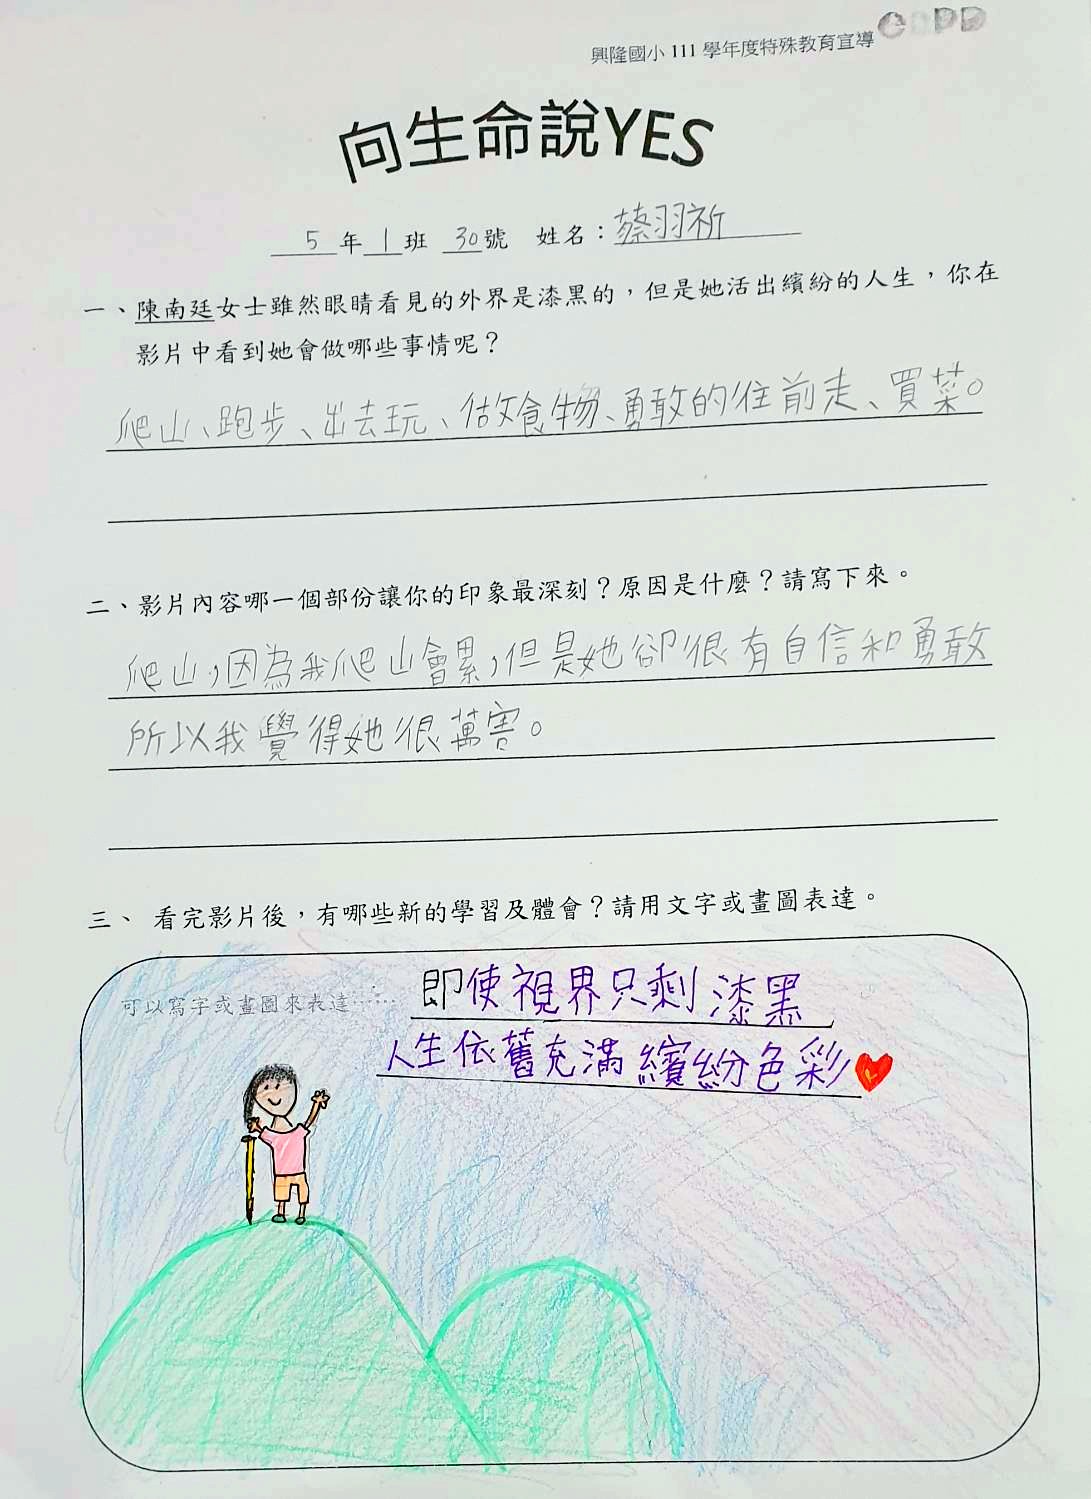 興隆國小 111 學年度特殊教育宣導
向生命說YES
5 年 1 班 30 號 姓名：蔡羽祈
一、陳南廷女士雖然眼睛看見的外界是漆黑的，但是她活出繽紛的人生，你在
影片中看到她會做哪些事情呢？
爬山、跑步、出去玩、做食物、勇敢的往前走、買菜。
二、影片內容哪一個部份讓你的印象最深刻？原因是什麼？請寫下來。
爬山，因為我爬山會累，但是她卻很有自信和勇敢
所以我覺得她很萬害。
三、 看完影片後，有哪些新的學習及體會？請用文字或畫圖表達。
可以寫字或畫圖來表達……
即使視界只剩漆黑
人生依舊充滿繽紛色彩